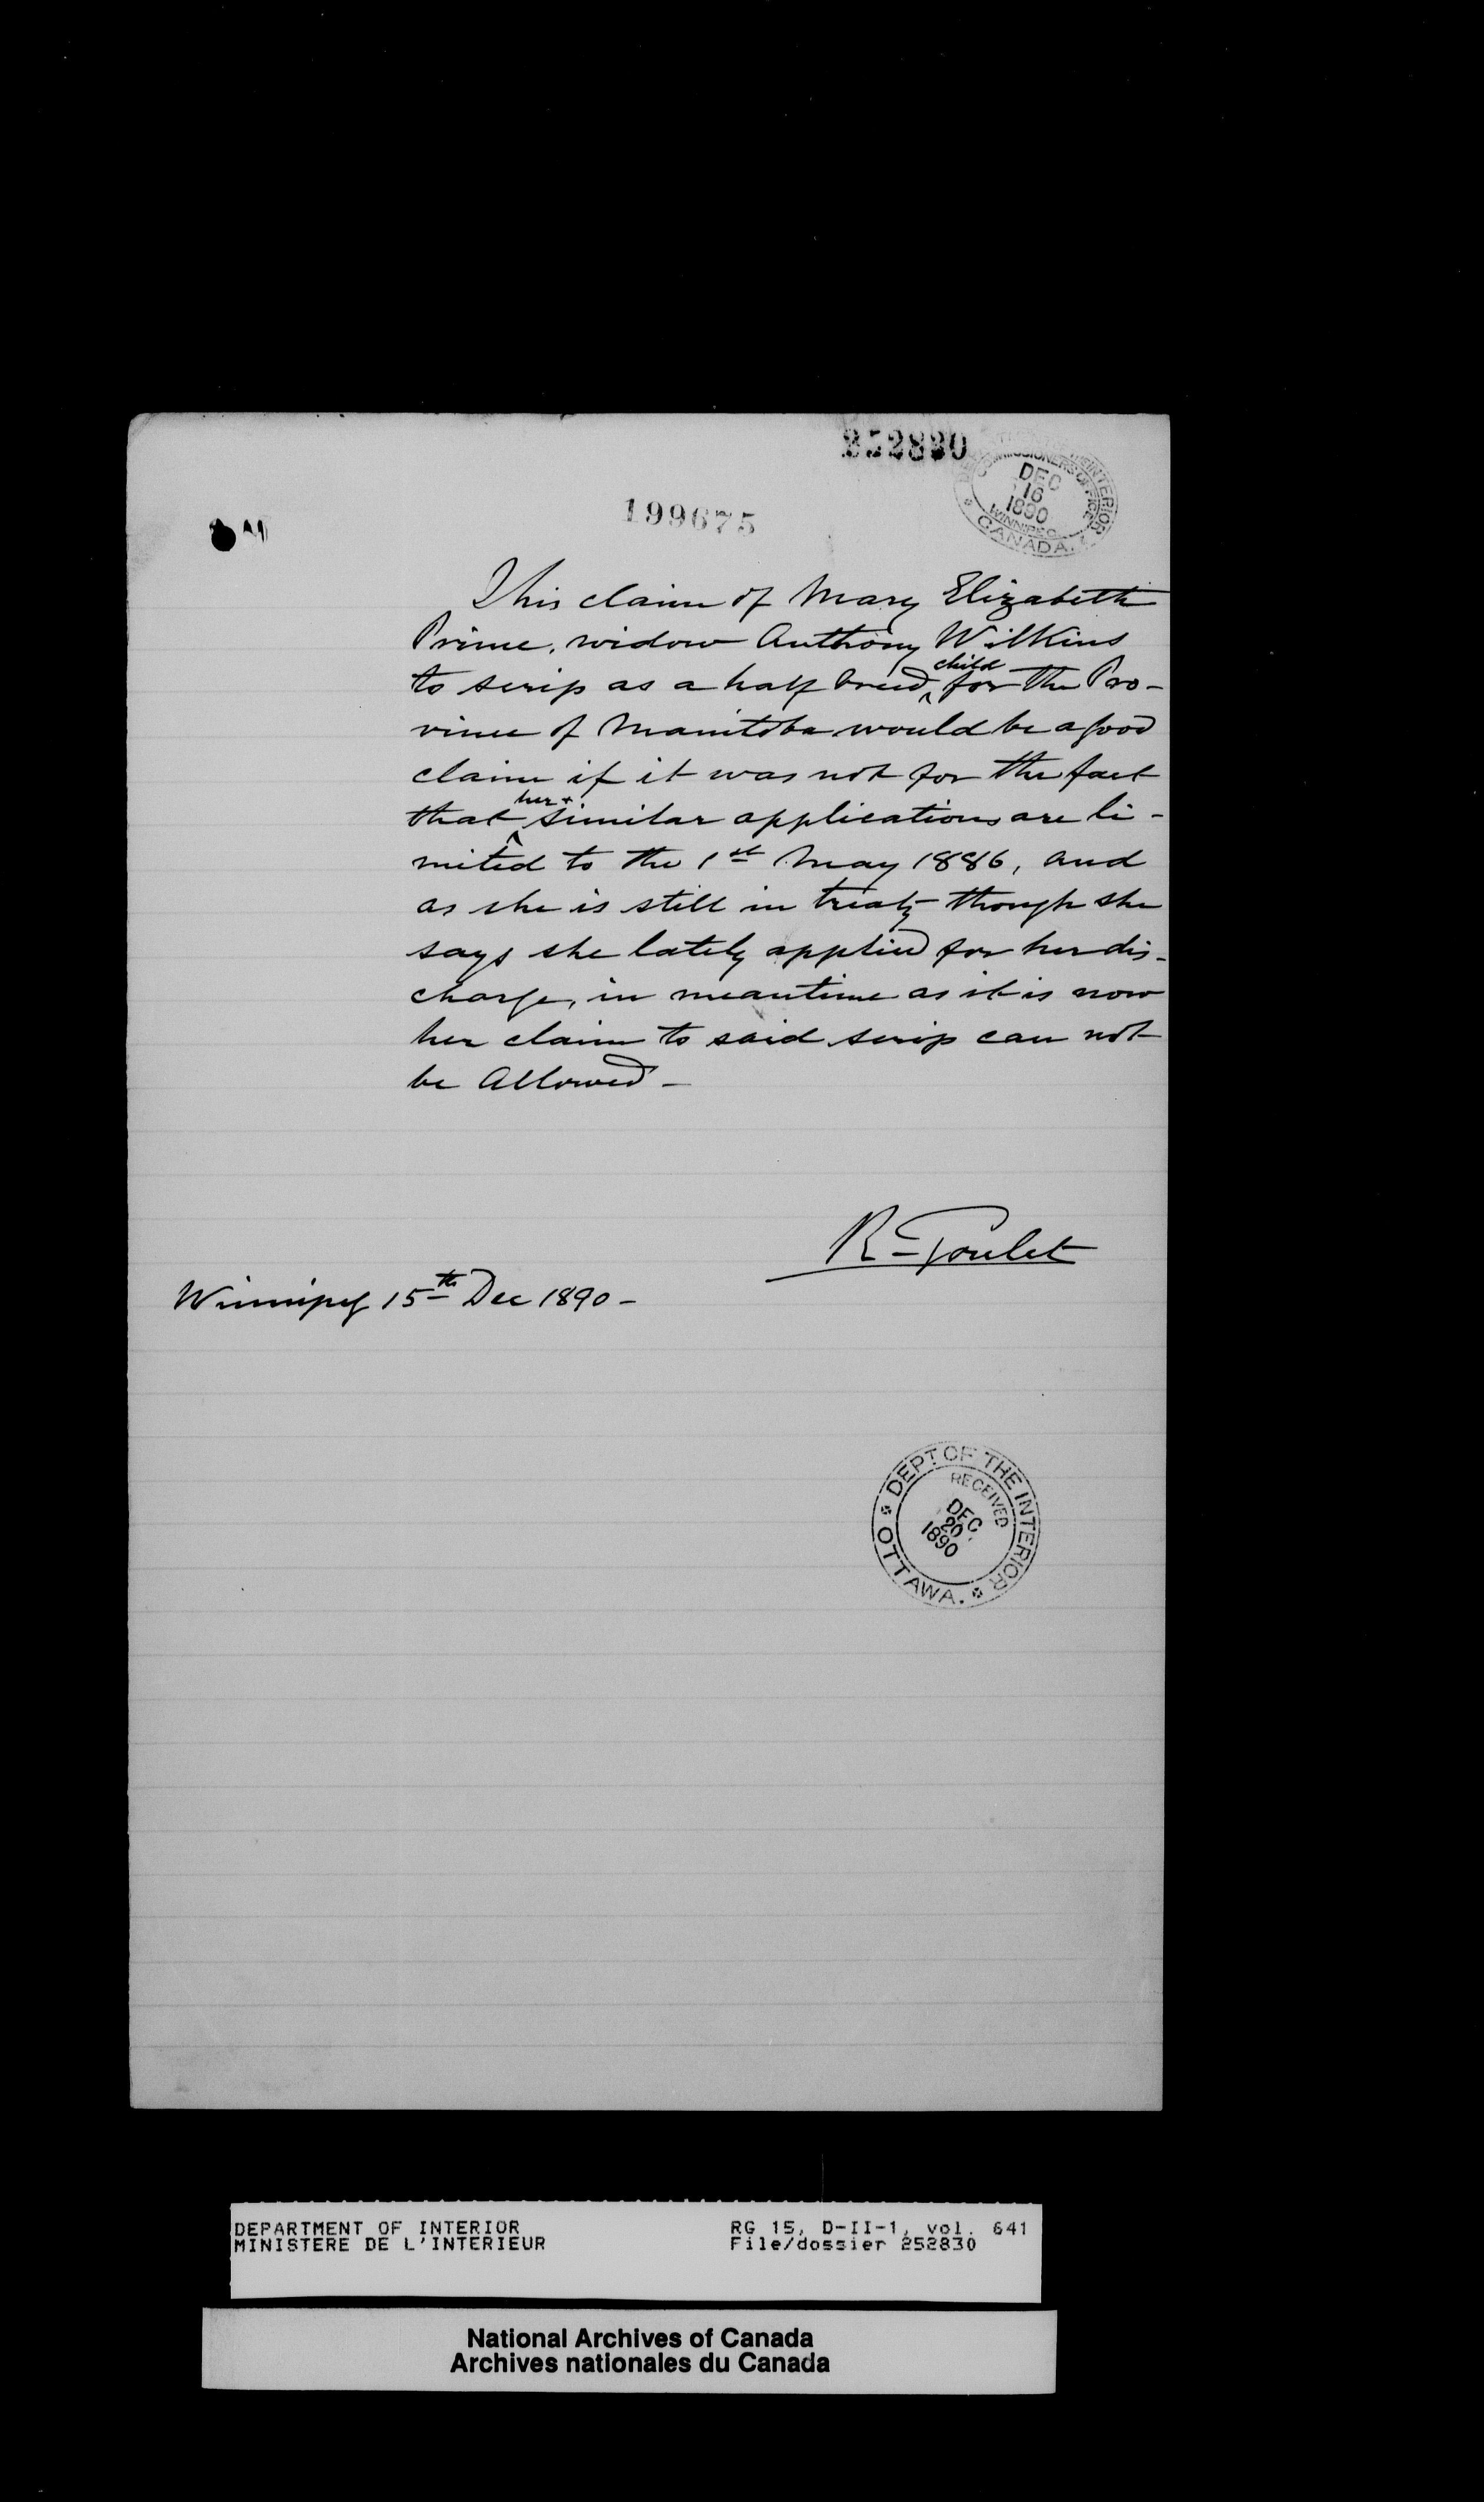 252830
DEPARTMENT OF THE INTERIOR
COMMISSIONERS OFFICE
DEC
16
1890
WINNIPEG.
CANADA.
199675
This claim of Mary Elizabeth
Prince, widow Anthony Wilkins
to scrip as a half breed ^child for the Pro-
vince of Manitoba would be a good
claim if it was not for the fact
that ^her & similar applications are li-
mited to the 1st May 1886, and
as she is still in treaty though she
says she lately applied for her dis-
charge, in meantime as it is now
her claim to said scrip can not
be allowed -
R - Goulet
Winnipeg 15th Dec 1890 -
DEPT OF THE INTERIOR
RECEIVED
DEC
20
1890
OTTAWA.
DEPARTMENT OF INTERIOR RG 15, D-II-1, vol. 641
MINISTERE DE L'INTERIEUR File/dossier 252830
National Archives of Canada
Archives nationales du Canada